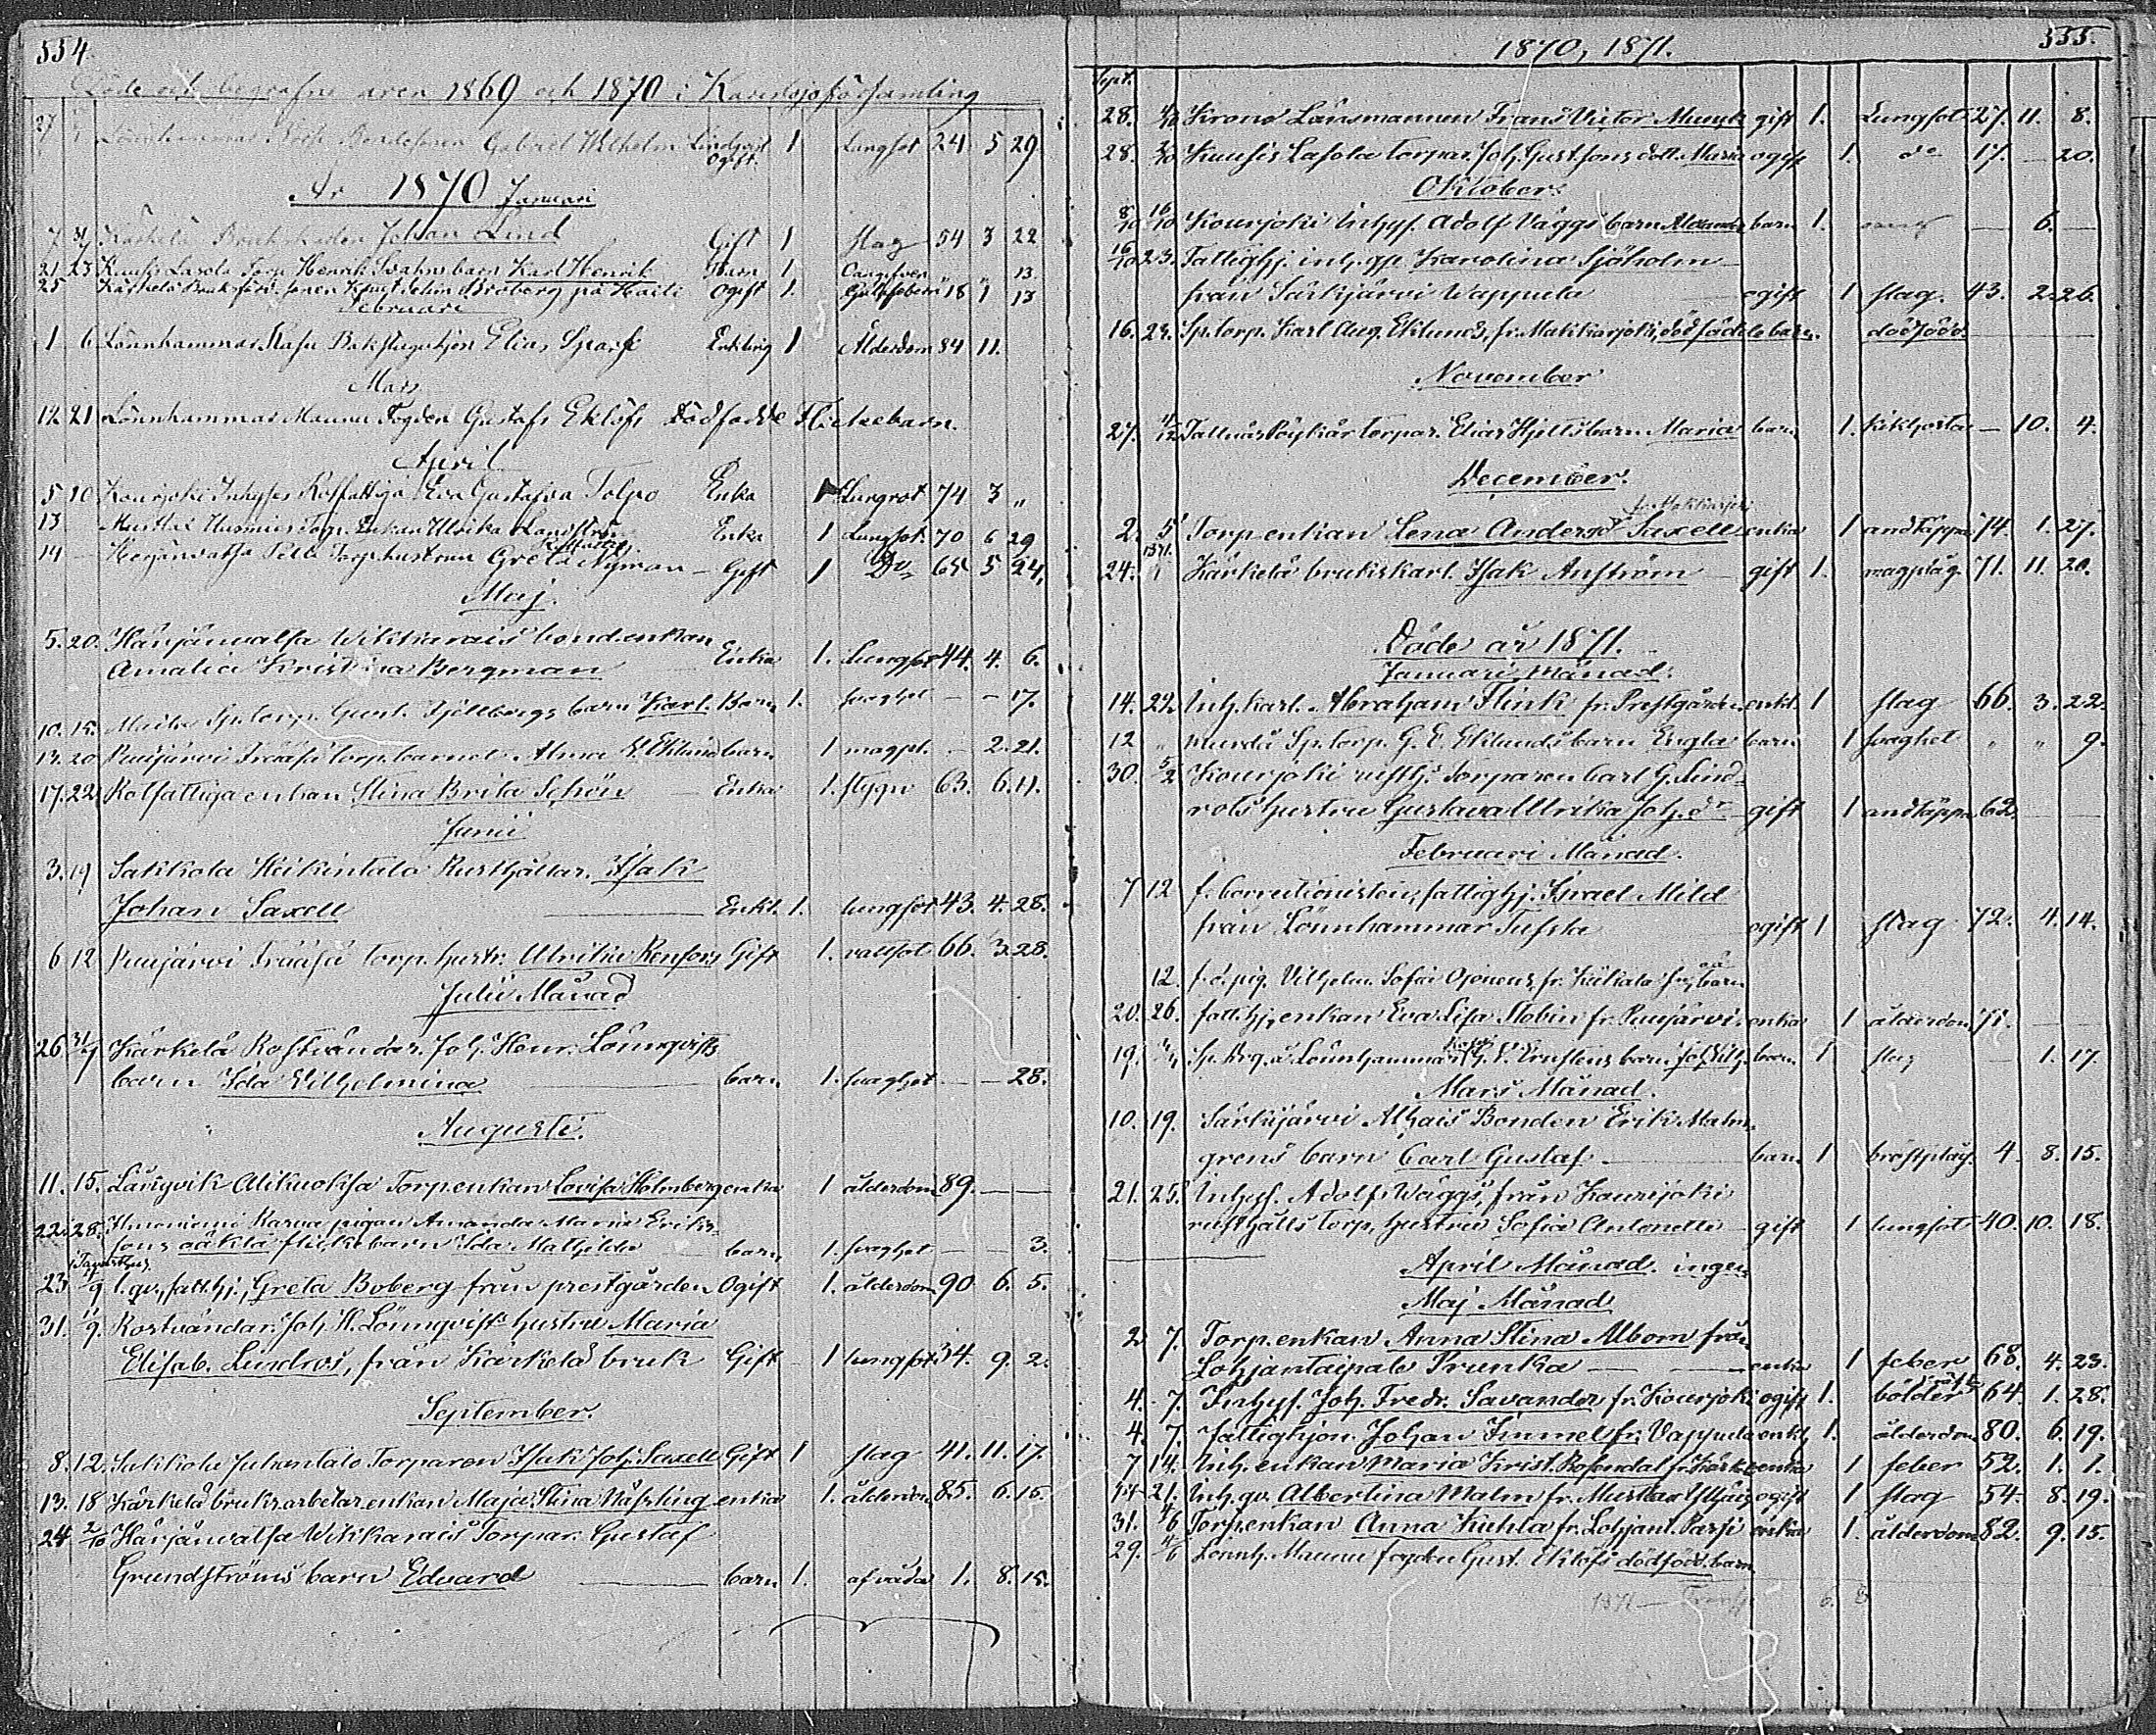 554.
Döde och begrafne åren 1869 och 1870 i Karislojo församling
27 Lönnhammar Gabriel Wilhelm Lindqvist Ogift 1 Lungsot 24 5 29.
År 1870 Januari
7 31/1 Kärkelä Bruks Johan Lind Gift 1 slag 54 3 22
21 23 Kuusis Lasola Torp. Henrik Svahns barn Karl Henrik Barn 1 Oangifven " " 13.
25 Kärkelä Bruks Broberg på Haili Ogift 1. 18 1 13
Februari
1 6 Lönnhammar Elias Sparf Enkling 1 Ålderdom 84 11.
Mars
12 21 Lönnhammar Maunu Fogden Gustafs Eklöfs Dödfödde Flickebarn.
April
5 10 Kourjoki Inhyses Rotfattiga Eva Gustafva Tolpo Enka 1 Lungsot 74 3 "
13 Enkan Ulrika Landström Enka 1 Lungsot 70 6 29
14 — Torp. hustrun Greta Nyman — Gift 1 Do 65 5 24,
Maj.
5. 20. Härjänvatsa Wikkarais bond.enkan
Amalia Kristina Bergman — Enka 1. Lungsot 44. 4. 6.
10. 15. Sp. torp. Gust. barn Karl. Barn 1. svaghet — — 17.
13. 20 Puujärvi torp. barnet Alma E. Eklund barn 1 magpl. — 2. 21.
17. 22. Rotfattiga enkan Stina Brita Schön — Enka 1. stygn 63. 6. 11.
Junii
3. 19 Sakkola Heikintalo Rusthållar. Isak
Johan Saxell — Enkl. 1. lungsot 43. 4. 28.
6 12 Puujärvi torp. hustr. Ulrika Renfors Gift 1. vattsot 66. 3. 28.
Julii Månad
26 31/7 Kärkelä Rostvändar. Joh. Henr. Lönnqvists
barn Ida Vilhelmina — barn 1. svaghet — — 28.
Augusti.
11. 15. Långvik Alikuoksa Torpenkan Lovisa Holmberg enka 1 ålderdom 89. — —
22. 28. Ilmoniemi Karua pigan Amanda Maria Eriks-
sons oäkta flickebarn Ida Mathilda — barn, 1. svaghet — — 3.
23. /9 l. qv., fatt.hj., Greta Boberg från prestgården Ogift 1. ålderdom 90 6. 5.
31. 11/9. Rostvändar. Joh. H. Lönnqvists hustru Maria
Elisab. Lindros, från Kärkelä bruk Gift — 1 lungsot 34. 9. 2.
September.
8. 12. Sakkola Juhantalo Torparen Isak Joh. Saxell Gift 1 slag 41. 11. 17.
13. 18 Kärkelä bruks arbetar.enkan Maja Stina Näsling enka 1. ålderdom 85. 6. 15.
24 2/10 Härjänvatsa Wikkarais Torpar. Gustaf
Grundströms barn Edvard — barn 1. af våda 1. 8. 15.
555.
1870, 1871.
Sept.
28. 4/10 Krono Länsmannen Frans Victor Munck gift 1. Lungsot 27. 11. 8.
28. 2/10 Kuusis Lasola torpar. Joh. Gust.sons dott. Maria ogift 1. do 17. — 20.
Oktober.
8/10 16/10 Kourjoki Inhys. Adolf Väggs barn Alexander barn 1. — 6. —
16/10 23. Fattighj. inh. qp Karolina Sjöholm —
från Särkjärvi Wappula — ogift 1 slag. 43. 2. 26.
16. 23. Sp. torp. Karl Aug. Eklunds, fr. Makkarjoki, dödfödde barn. dödfödd. — —
November
27. 4/12 Tallnäs Pöykär torpar. Elias Hjelts barn Maria barn 1. kikhosta — 10. 4.
December.
fr. Makkarjoki
2. 5 Torpenkan Lena Andersdr Saxell enka 1 andtäppa 74. 1. 27.
1871.
24. 1/1 Kärkelä brukskarl. Isak Anström — gift 1. magplåg. 71. 11. 20.
Döde år 1871.
Januari Månad.
14. 22. Inh. karl. Abraham Flink fr. Prestgården enkl. 1 slag 66. 3. 22.
12 " Sp. torp. G. E. Eklunds barn Engla barn 1 svaghet " " 9.
30. 5/2 Kourjoki rusth. Torparen Carl G. Lind-
rots hustru Gustava Ulrika Joh.dr — gift 1 andtäppa 62. — —
Februari Månad.
7 12 f. correctionisten, fattighj. Israel Mild
från Lönnhammar — ogift 1 slag 72. 4. 14.
12. pig. Vilhelm. Sofia Ojonens fr. barn
20. 26. fatt.hj. enkan Eva Lisa Stobin fr. Puujärvi enka 1 ålderdom 71. — —
19. Lönnhammar G. V. Ernstens barn Joh. Vilh. barn 1 slag — 1. 17.
Mars Månad.
10. 19. Särkijärvi Alhais Bonden Erik Malm-
grens barn Carl Gustaf — barn 1 bröstplåg. 4. 8. 15.
21. 25. Inhys. Adolf Väggs, från Kourjoki
rusthålls torp, hustru Sofia Antonetta — gift 1 lungsot 40. 10. 18.
April Månad. ingen
Maj Månad
2 7. Torp.enkan Anna Stina Albom från
Lohjantaipale Prunka — — enka 1 feber 68. 4. 23.
4. 7. Inhys. Joh. Fredr. Savander fr. Kourjoki ogift 1. bölder 64. 1. 28.
4. 7. Fattighjon Johan Kimmel fr. Vappula enkl. 1. ålderdom 80. 6. 19.
7 14. Inh. enkan Maria Krist. Rosendal fr. Kärkelä enka 1 feber 52. 1. 1.
14 21. Inh. qv. Albertina Malm fr. Mustlax ogift 1 slag 54 8. 19.
31. 4/6 Torp.enkan Anna Kuhla fr. Lohjant. Parsi enka 1. ålderdom 82. 9. 15.
29. 4/6 Lönnh. Maunu fogden Gust. Eklöfs dödföd. barn
1871 — 6. 8